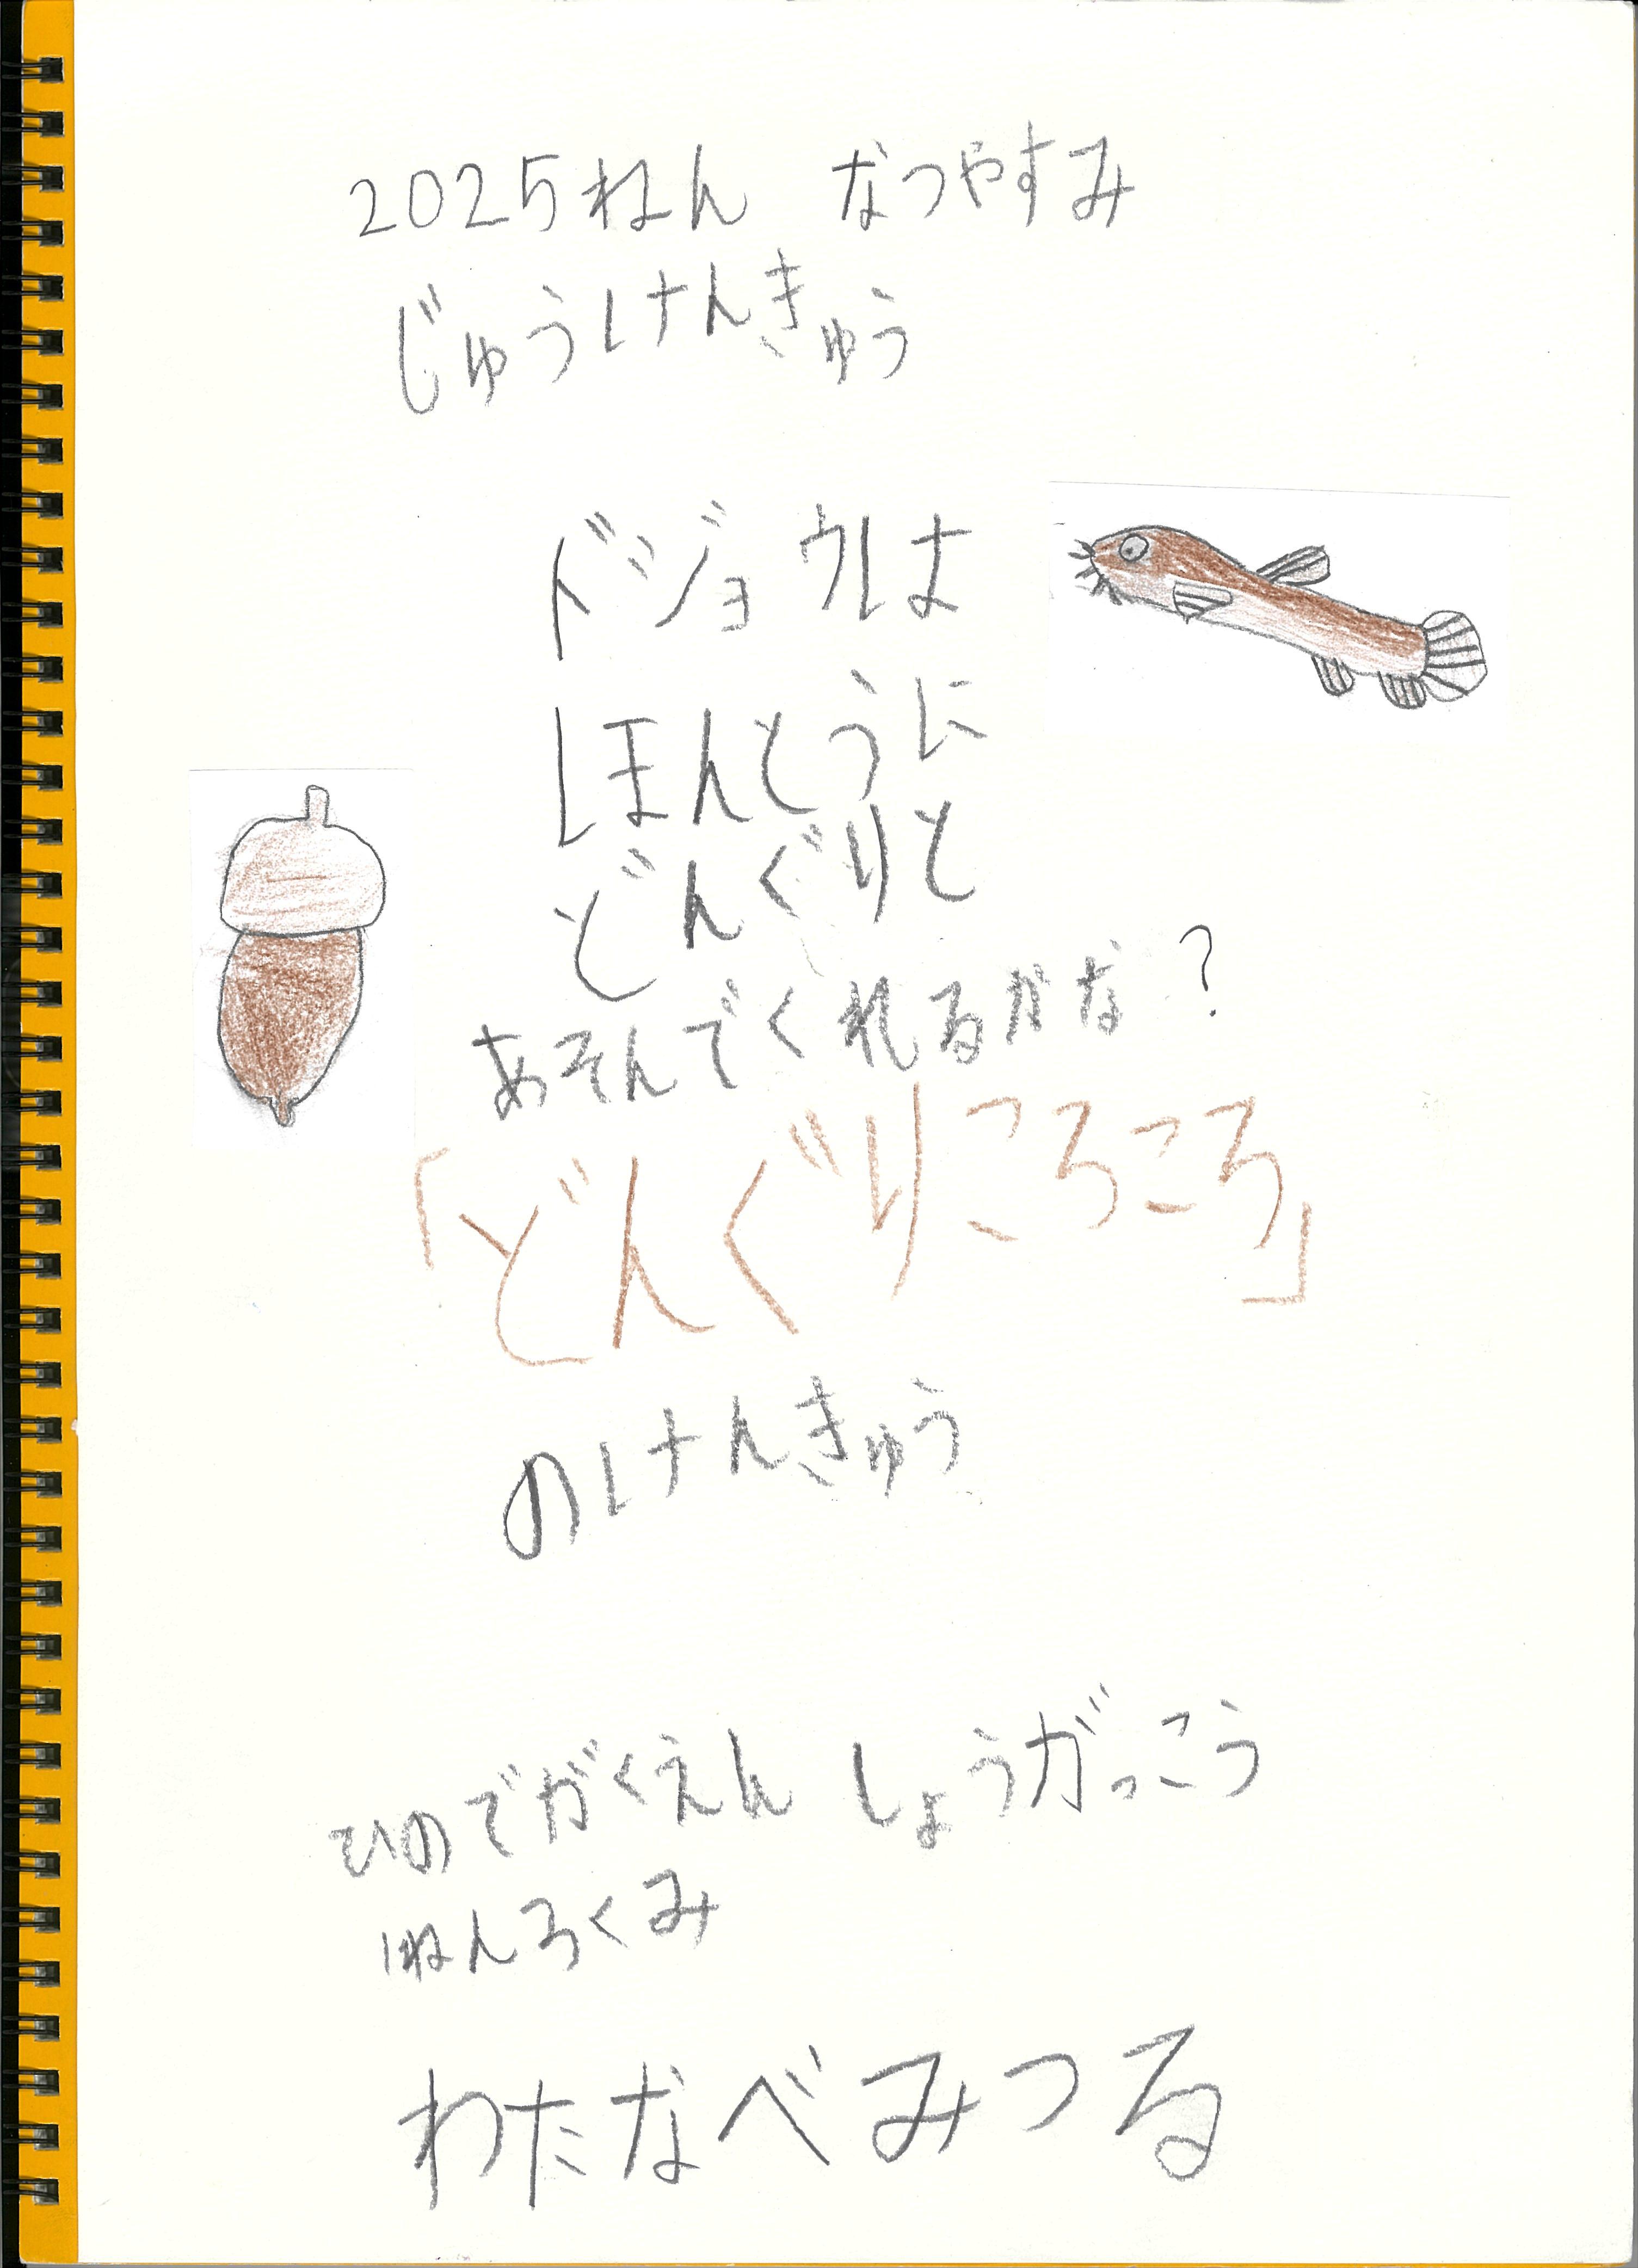 2025ねん なつやすみ
じゆうけんきゅう
ドジョウは
ほんとうに
どんぐりと
あそんでくれるかな?
「どんぐりころころ」
のけんきゅう
ひのでがくえん しょうがっこう
1ねんろくみ
わたなべみつる